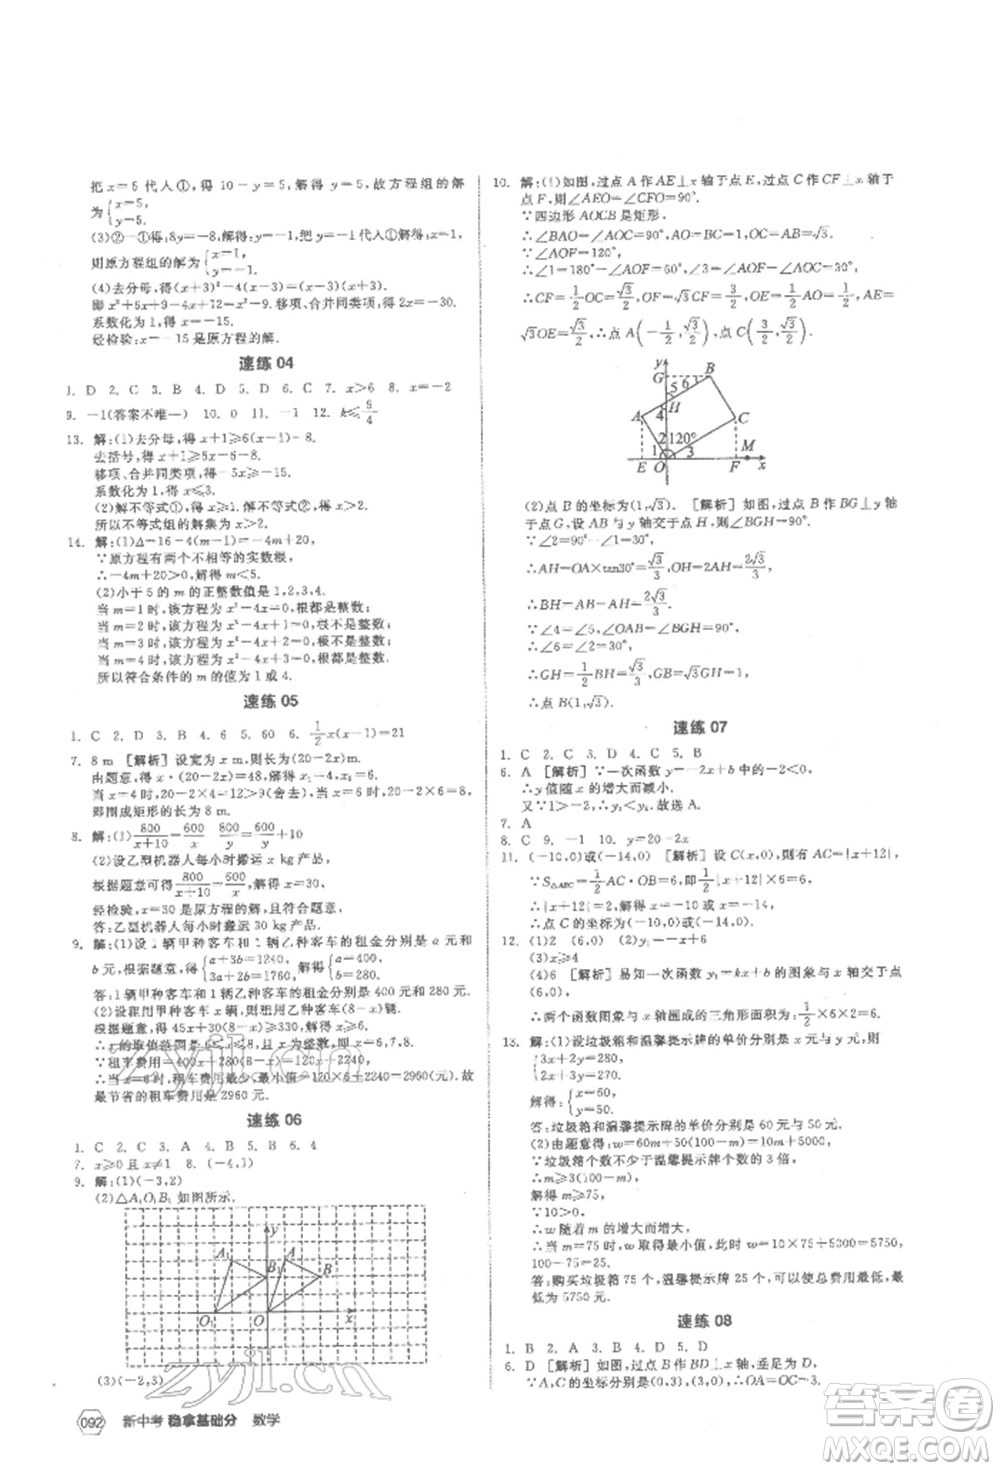 把 x=5 代入①,得 10-y=5,解得 y=5,故方程组的解
为{x=5,
y=5.
(3)②-①得:8y=-8,解得:y=-1.
把 y=-1 代入①得:x=1,
则原方程组的解为{x=1,
y=-1.
(4)去分母,得(x+3)²-4(x-3)=(x-3)(x+3),
即 x²+6x+9-4x+12=x²-9.移项、合并同类项,得 2x=-30.
系数化为 1,得 x=-15.
经检验:x=-15 是原方程的解.
速练 04
1. D 2. C 3. B 4. D 5. D 6. C 7. x>6 8. x=-2
9. -1(答案不唯一) 10. 0 11. -1 12. k≤9/4
13. 解:(1)去分母,得 x+1≥6(x-1)-8.
去括号,得 x+1≥6x-6-8.
移项、合并同类项,得 -5x≥-15.
系数化为 1,得 x≤3.
所以不等式组的解集为 x>2.
14. 解:(1)Δ=16-4(m-1)=-4m+20,
∵原方程有两个实数根,
∴-4m+20≥0,解得 m≤5.
(2)小于 5 的正整数值是 1,2,3,4,
当 m=1 时,该方程为 x²-4x=0,根都是整数;
当 m=2 时,该方程为 x²-4x+1=0,根不是整数;
当 m=3 时,该方程为 x²-4x+2=0,根不是整数;
当 m=4 时,该方程为 x²-4x+3=0,根都是整数.
所以符合条件的 m 的值为 1 或 4.
速练 05
1. C 2. D 3. B 4. 6 5. 60 6. 1/2x(x-1)=21
7. 8 m [解析]设宽为 x m,则长为(20-2x)m.
由题意,得 x·(20-2x)=48,解得 x₁=4,x₂=6.
当 x=4 时,20-2×4=12>9(舍去);当 x=6 时,20-2×6=8.
即围成矩形的长为 8 m.
8. 解:(1)800/(x+10)=600/x 800/y=600/y+10
(2)设乙型机器人每小时搬运 x kg 产品,
根据题意可得 800/(x+10)=600/x,解得 x=30,
经检验,x=30 是原方程的解,且符合题意.
答:乙型机器人每小时搬运 30 kg 产品.
9. 解:(1)设 1 辆甲种客车与 1 辆乙种客车的租金分别是 a 元和
b 元,根据题意,得{a+3b=1240,
3a+2b=1760,
解得{a=400,
b=280.
答:1 辆甲种客车与 1 辆乙种客车的租金分别是 400 元和 280 元.
(2)设租用甲种客车 x 辆,则租用乙种客车(8-x)辆.
∴x 的取值为 6,7,8.
∴当 x=6 时,租车费用最少,最小值=120×6+2240=2960(元).故
最节省的租车费用是 2960 元.
速练 06
1. C 2. C 3. A 4. B 5. B 6. 4
7. x≥0且x≠1 8. (-4,1)
9. 解:(1)(-3,2)
(2)△A₁O₁B₁ 如图所示.
y
A₁ A
B₁ B
O₁ O x
(3)(-2,3)
092 新中考 稳拿基础分 数学
10. 解:(1)如图,过点 A 作 AE⊥x 轴于点 E,过点 C 作 CF⊥x 轴于
点 F,则∠AEO=∠CFO=90°.
∵四边形 AOCB 是矩形,
∴∠BAO=∠AOC=90°,AO=BC=1,AB=OC=√3.
∵∠AOF=120°,
∴∠1=180°-120°=60°,∠3=120°-90°=30°.
∴CF=1/2OC=√3/2,OF=√3CF=3/2,OE=1/2AO=1/2,AE=
√3OE=√3/2,∴点 A(-1/2,√3/2),点 C(3/2,√3/2).
y
G B
5 6
H
A 4 C
2 120°
1 3 M
E O F x
(2)点 B 的坐标为(1,√3). [解析]如图,过点 B 作 BG⊥y 轴
于点 G,设 AB 与 y 轴交于点 H,则∠BGH=90°.
∵∠2=90°-∠1=30°,
∴AH=OA×tan30°=√3/3,OH=2AH=2√3/3.
∴BH=AB-AH=2√3/3.
∵∠4=∠5,∠OAB=∠BGH=90°,
∴∠6=∠2=30°.
∴GH=1/2BH=√3/3,GB=√3GH=1,
∴OG=OH+GH=√3.
∴点 B(1,√3).
速练 07
1. C 2. C 3. D 4. C 5. B
6. A [解析]∵一次函数 y=-2x+b 中 k=-2<0,
∴y 值随 x 值的增大而减小.
7. A
8. C 9. -1 10. y=20-2x
11. (-10,0)或(-14,0) [解析]设 C(x,0),则有 AC=|x+12|,
∵S△ABC=1/2AC·OB=6,
∴点 C 的坐标为(-10,0)或(-14,0).
12. (1)2 (6,0) (2)y₁=-x+6
(3)x≥4
(4)6 [解析]易知一次函数 y₁=kx+b 的图象与 x 轴交于点
(6,0),
∴两个函数图象与 x 轴围成的三角形面积为:1/2×6×2=6.
13. 解:(1)设垃圾箱和温馨提示牌的单价分别是 x 元和 y 元,则
{3x+2y=280,
解得:{x=60,
y=50.
答:垃圾箱和温馨提示牌的单价分别是 60 元与 50 元.
(2)由题意得:w=60m+50(100-m)=10m+5000,
∵垃圾箱个数不少于温馨提示牌个数的 3 倍,
∴m≥3(100-m).
解得 m≥75.
∵10>0,
∴w 随着 m 的增大而增大.
∴当 m=75 时,w 取得最小值,最小值=10×75+5000=5750,
100-m=25.
答:购买垃圾箱 75 个,温馨提示牌 25 个,可使总费用最小,
最小值是 5750 元.
速练 08
1. B 2. A 3. B 4. D 5. D
6. D [解析]如图,过点 B 作 BD⊥x 轴,垂足为 D,
zyjl.cn
zyjl.cn
答案圈
MXQE.COM